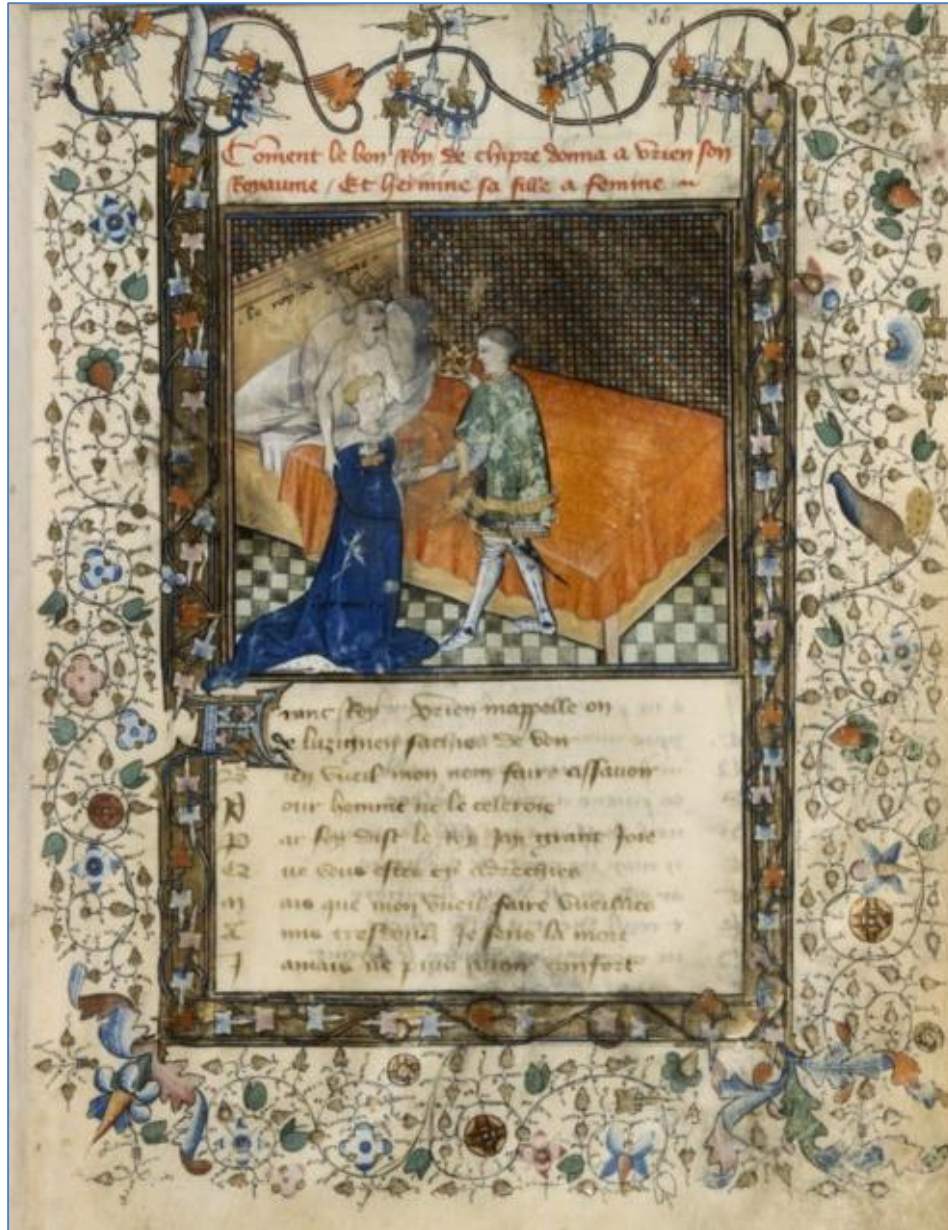 36
Coment le bon Roy de chipre donna a Urien son
Royaume / Et hermine sa fille a femme
le roy de chipre
Franc Roy Urien mappelle on
De luzignen
Bien vueil mon nom faire assavoir
Pour homme ne le celeroie
Par foy dist le Roy Jay grant Joie
Que vous estes cy
Mais que mon vueil faire vueilliez
Amis trestout Je sens la mort
Jamais ne confort